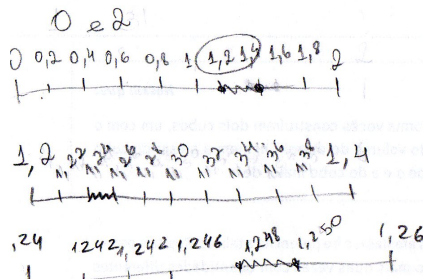 0 e 2
0 0,2 0,4 0,6 0,8 1 1,2 1,4 1,6 1,8 2
1,2 1,22 1,24 1,26 1,28 1,30 1,32 1,34 1,36 1,38 1,4
,24 1242 1,242 1,246 1,248 1,250 1,26